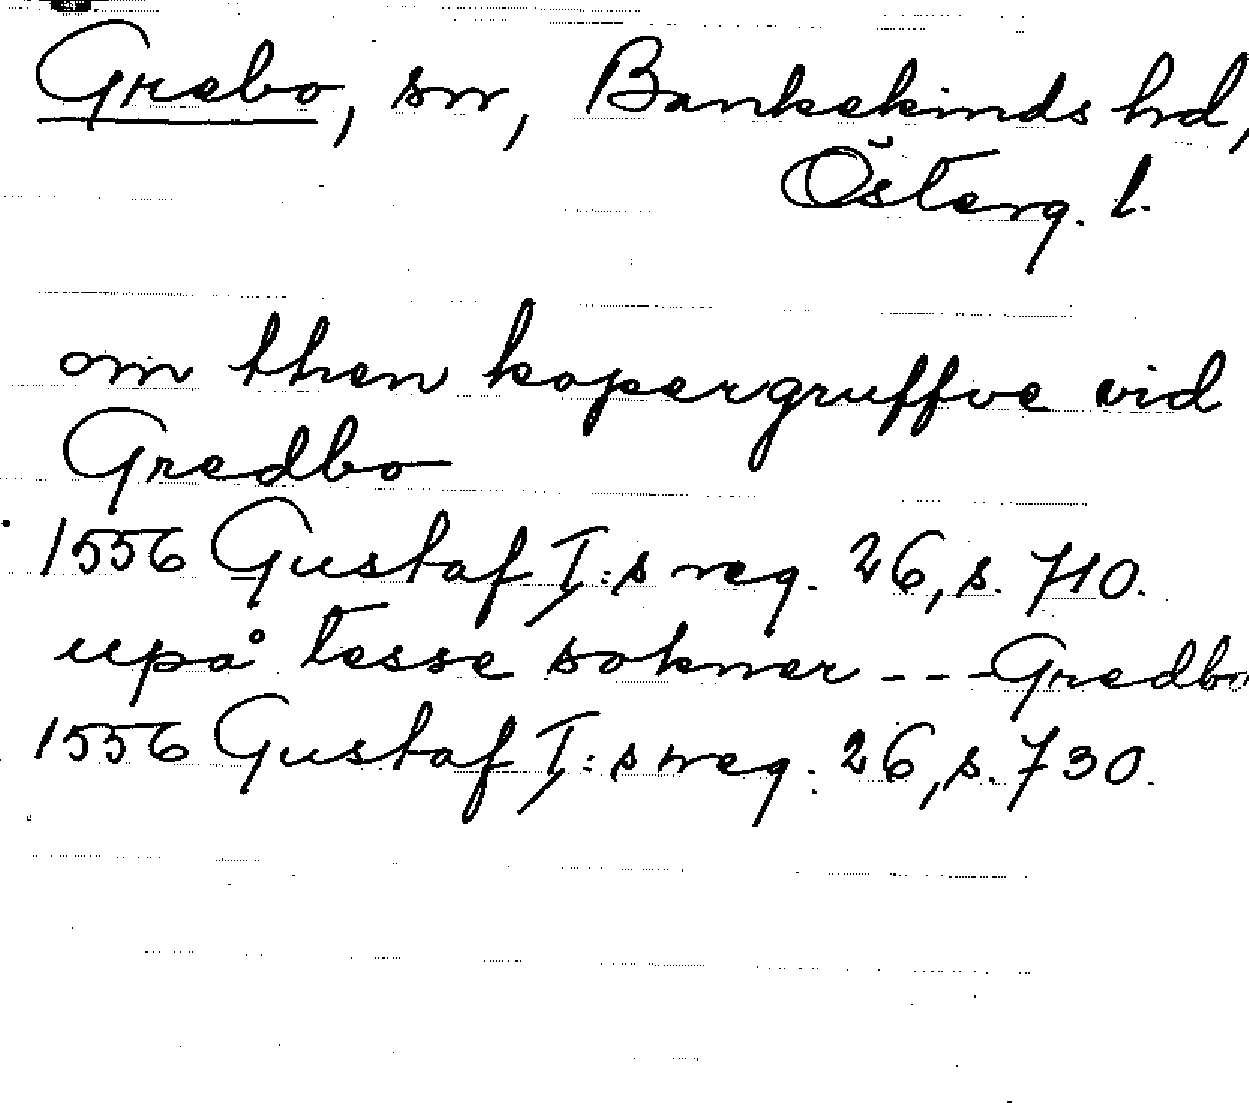 Grebo, sn, Bankekinds hd,
Österg. l.
om then kopergruffve vid
Gredbo
1556 Gustaf I:s reg. 26, s. 710.
uppå tesse sokner --- Gredbo
1556 Gustaf I:s reg. 26, s. 730.